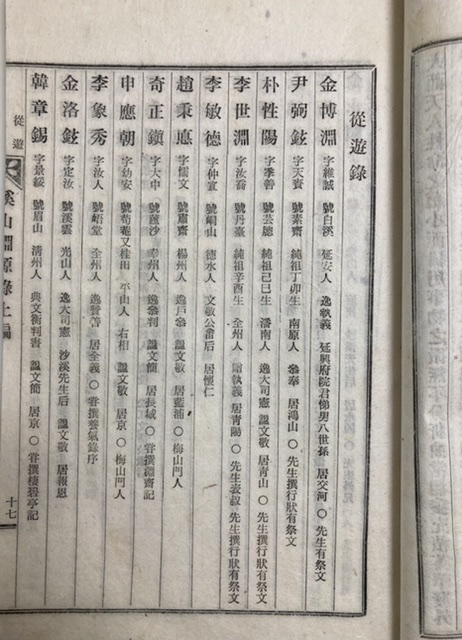 從遊錄
金博淵 字維誠 號白溪 延安人 逸執義 延興府院君悌男八世孫 居交河 〇 先生有祭文
尹弼鉉 字天賚 號素齋 純祖丁卯生 南原人 參奉 居鴻山 〇 先生撰行狀有祭文
朴性陽 字季善 號芸牕 純祖己巳生 潘南人 逸大司憲 諡文敬 居青山 〇 先生撰行狀有祭文
李世淵 字汝喬 號丹臺 純祖辛酉生 全州人 贈執義 居青陽 〇 先生表叔 先生撰行狀有祭文
李敏德 字仲宣 號峒山 德水人 文敬公 后 居懷仁
趙秉悳 字孺文 號肅齋 楊州人 逸戶參 諡文敬 居藍浦 〇 梅山門人
奇正鎭 字大中 號蘆沙 幸州人 逸參判 諡文簡 居長城 〇 嘗撰淵齋記
申應朝 字幼安 號苟菴又桂田 平山人 右相 諡文敬 居京 〇 梅山門人
李象秀 字汝人 號峿堂 全州人 逸贊善 居全義 〇 嘗撰養氣錄序
金洛鉉 字定汝 號溪雲 光山人 逸大司憲 沙溪先生后 諡文敬 居報恩
韓章錫 字景綏 號眉山 淸州人 典文衡判書 諡文簡 居京 〇 嘗撰棲碧亭記
從遊
溪山淵源錄上編
十七